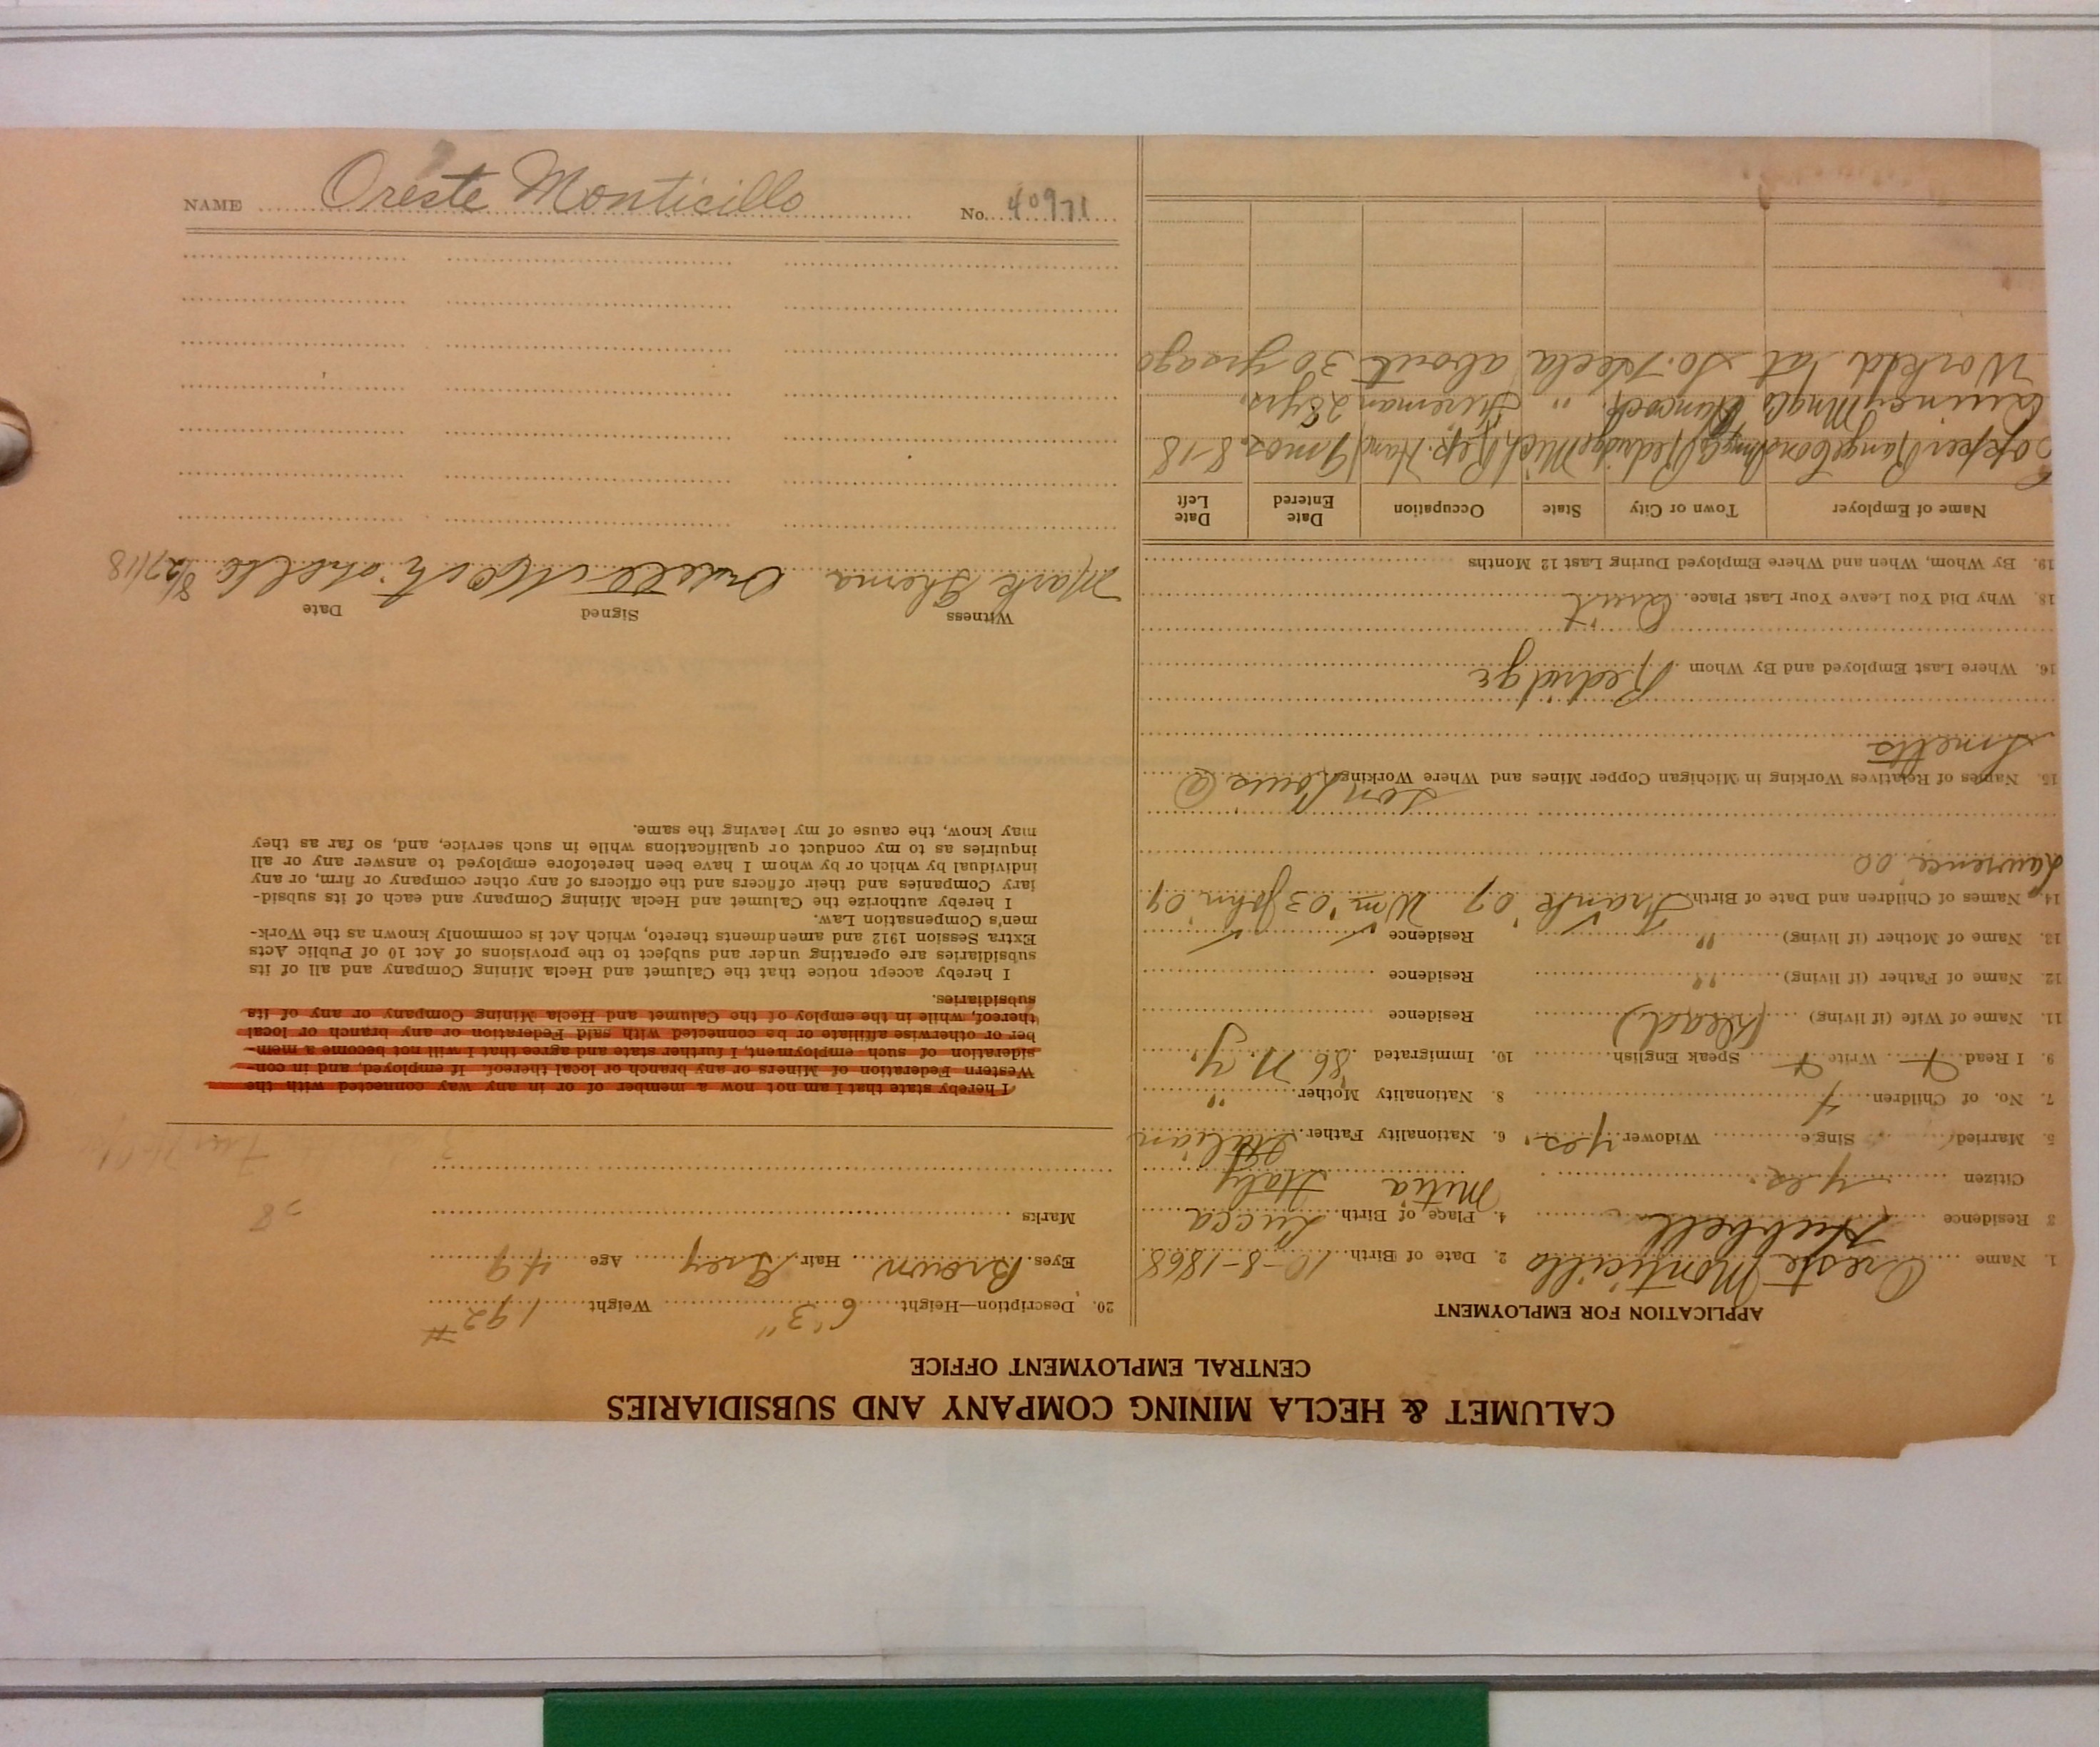 NAME Oreste Monticillo No. 40971
CALUMET & HECLA MINING COMPANY AND SUBSIDIARIES
CENTRAL EMPLOYMENT OFFICE
APPLICATION FOR EMPLOYMENT
1. Name Oreste Monticillo 2. Date of Birth 10-8-1868
3 Residence Hubbell 4. Place of Birth Lucca
Citizen yes Italy
5. Married Single Widower yes. 6. Nationality Father Italian
7. No. of Children 4 8. Nationality Mother "
9. I Read Write Speak English 10. Immigrated '86 N.Y.
11. Name of Wife (if living) (Dead) Residence
12. Name of Father (if living) " Residence
13. Name of Mother (if living) " Residence
14. Names of Children and Date of Birth Frank '07 Wm '03 John '04
Lawrence '00
15. Names of Relatives Working in Michigan Copper Mines and Where Working son Louis @
Smelts
16. Where Last Employed and By Whom Redridge
18. Why Did You Leave Your Last Place. Quit
19. By Whom, When and Where Employed During Last 12 Months
Name of Employer Town or City State Occupation Date Entered Date Left
Copper Range Cons Redridge Mich Rep. Hand 9 mos. 8-18
Quincy Mng Co Hancock " Fireman 28 yrs.
Worked at So. Hecla about 30 yrs ago
20. Description—Height 6'3" Weight 192#
Eyes. Brown Hair Grey Age 49
Marks
I hereby state that I am not now a member of or in any way connected with the
Western Federation of Miners or any branch or local thereof. If employed, and in con-
sideration of such employment, I further state and agree that I will not become a mem-
ber or otherwise affiliate or be connected with said Federation or any branch or local
thereof, while in the employ of the Calumet and Hecla Mining Company or any of its
subsidiaries.
I hereby accept notice that the Calumet and Hecla Mining Company and all of its
subsidiaries are operating under and subject to the provisions of Act 10 of Public Acts
Extra Session 1912 and amendments thereto, which Act is commonly known as the Work-
men's Compensation Law.
I hereby authorize the Calumet and Hecla Mining Company and each of its subsid-
iary Companies and their officers and the officers of any other company or firm, or any
individual by which or by whom I have been heretofore employed to answer any or all
inquiries as to my conduct or qualifications while in such service, and, so far as they
may know, the cause of my leaving the same.
Witness Signed Date
Mark 8/27/18